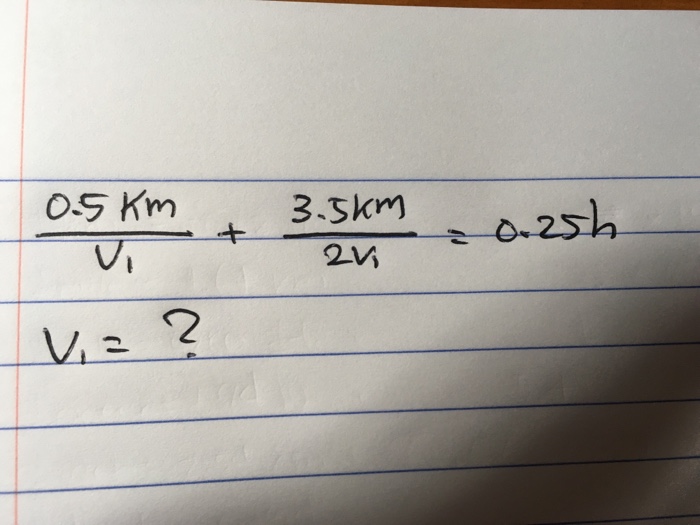 0.5 Km / V₁ + 3.5km / 2V₁ = 0.25h
V₁ = ?